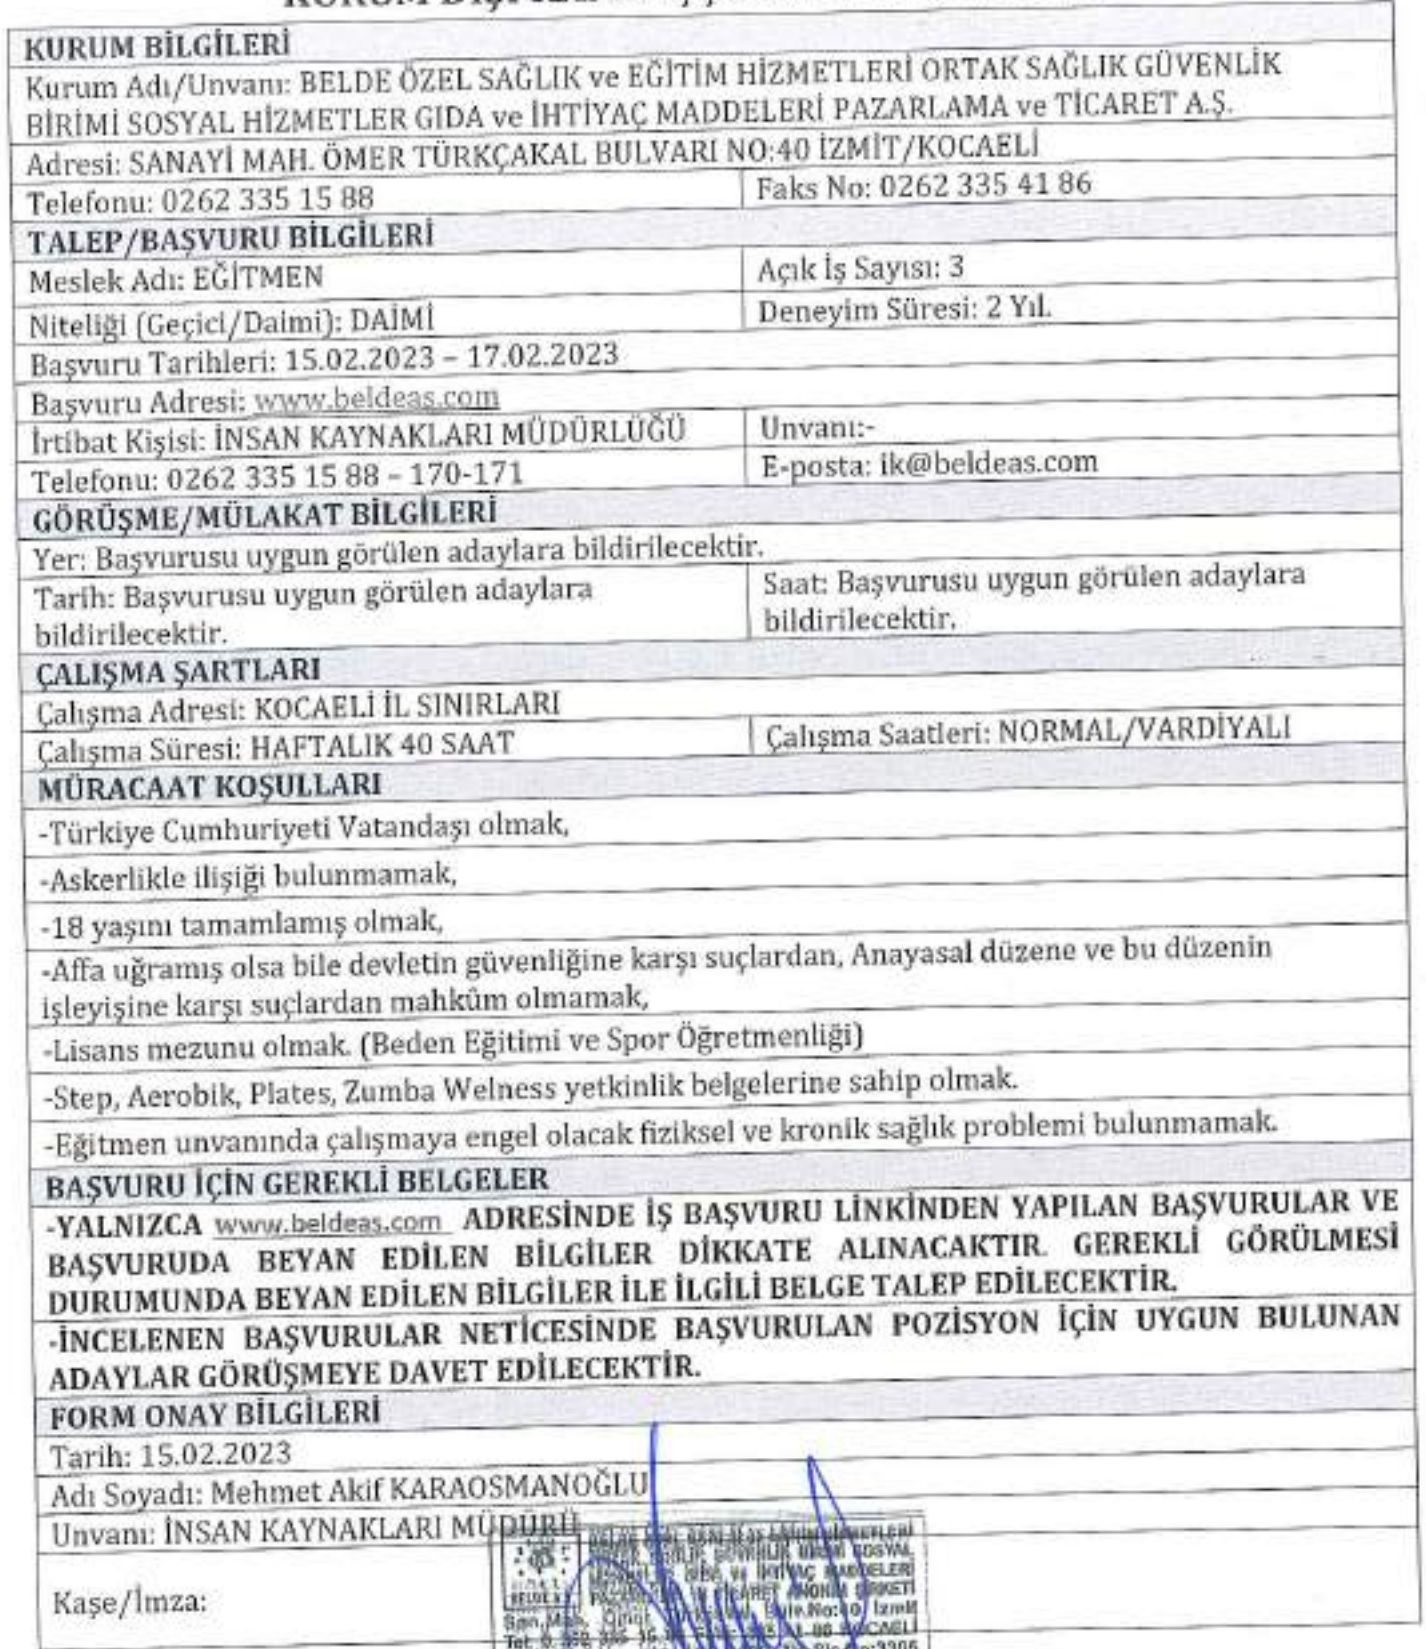 KURUM BİLGİLERİ
Kurum Adı/Unvanı: BELDE ÖZEL SAĞLIK ve EĞİTİM HİZMETLERİ ORTAK SAĞLIK GÜVENLİK
BİRİMİ SOSYAL HİZMETLER GIDA ve İHTİYAÇ MADDELERİ PAZARLAMA ve TİCARET A.Ş.
Adresi: SANAYİ MAH. ÖMER TÜRKÇAKAL BULVARI NO:40 İZMİT/KOCAELİ
Telefonu: 0262 335 15 88
Faks No: 0262 335 41 86
TALEP/BAŞVURU BİLGİLERİ
Meslek Adı: EĞİTMEN
Açık İş Sayısı: 3
Niteliği (Geçici/Daimi): DAİMİ
Deneyim Süresi: 2 Yıl.
Başvuru Tarihleri: 15.02.2023 – 17.02.2023
Başvuru Adresi: www.beldeas.com
İrtibat Kişisi: İNSAN KAYNAKLARI MÜDÜRLÜĞÜ
Unvanı:-
Telefonu: 0262 335 15 88 – 170-171
E-posta: ik@beldeas.com
GÖRÜŞME/MÜLAKAT BİLGİLERİ
Yer: Başvurusu uygun görülen adaylara bildirilecektir.
Tarih: Başvurusu uygun görülen adaylara
bildirilecektir.
Saat: Başvurusu uygun görülen adaylara
bildirilecektir.
ÇALIŞMA ŞARTLARI
Çalışma Adresi: KOCAELİ İL SINIRLARI
Çalışma Süresi: HAFTALIK 40 SAAT
Çalışma Saatleri: NORMAL/VARDİYALI
MÜRACAAT KOŞULLARI
-Türkiye Cumhuriyeti Vatandaşı olmak,
-Askerlikle ilişiği bulunmamak,
-18 yaşını tamamlamış olmak,
-Affa uğramış olsa bile devletin güvenliğine karşı suçlardan, Anayasal düzene ve bu düzenin
işleyişine karşı suçlardan mahkûm olmamak,
-Lisans mezunu olmak. (Beden Eğitimi ve Spor Öğretmenliği)
-Step, Aerobik, Plates, Zumba Welness yetkinlik belgelerine sahip olmak.
-Eğitmen unvanında çalışmaya engel olacak fiziksel ve kronik sağlık problemi bulunmamak.
BAŞVURU İÇİN GEREKLİ BELGELER
-YALNIZCA www.beldeas.com ADRESİNDE İŞ BAŞVURU LİNKİNDEN YAPILAN BAŞVURULAR VE
BAŞVURUDA BEYAN EDİLEN BİLGİLER DİKKATE ALINACAKTIR. GEREKLİ GÖRÜLMESİ
DURUMUNDA BEYAN EDİLEN BİLGİLER İLE İLGİLİ BELGE TALEP EDİLECEKTİR.
-İNCELENEN BAŞVURULAR NETİCESİNDE BAŞVURULAN POZİSYON İÇİN UYGUN BULUNAN
ADAYLAR GÖRÜŞMEYE DAVET EDİLECEKTİR.
FORM ONAY BİLGİLERİ
Tarih: 15.02.2023
Adı Soyadı: Mehmet Akif KARAOSMANOĞLU
Unvanı: İNSAN KAYNAKLARI MÜDÜRÜ
Kaşe/İmza: